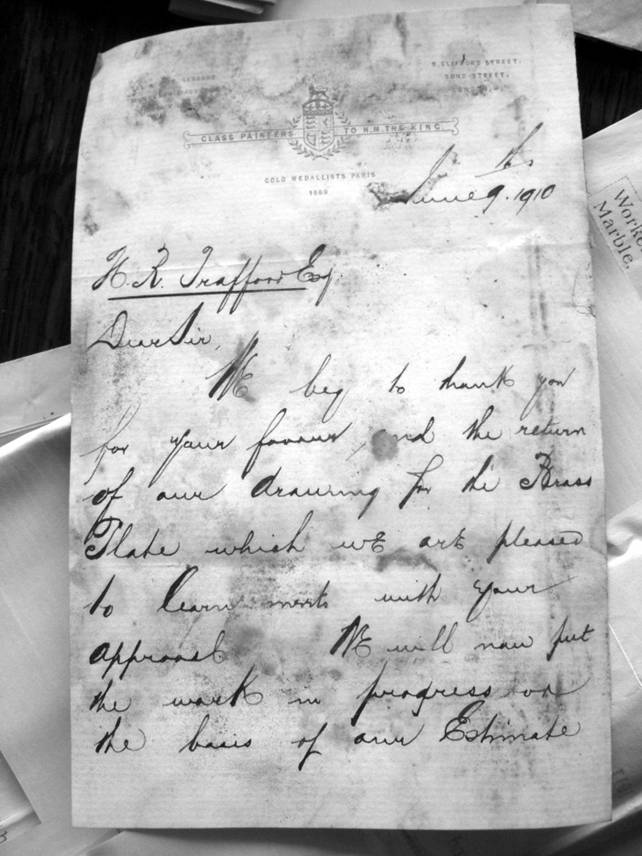 5, CLIFFORD STREET,
BOND STREET,
LONDON, W.
GLASS PAINTERS TO H.M. THE KING.
GOLD MEDALLISTS PARIS
1889
June 9. 1910
H. R. Trafford Esq.
Dear Sir,
We beg to thank you
for your favour, and the return
of our drawing for the Brass
Plate which we are pleased
to learn meets with your
approval We will now put
the work in progress on
the basis of our Estimate
Marble.